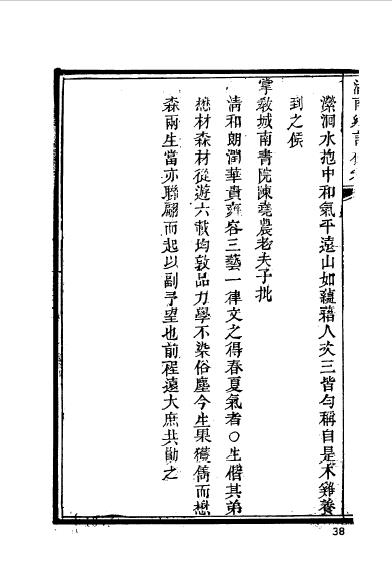 瀠洄水抱中和氣平遠山如蘊藉人次三皆勻稱自是木雞養
到之候
掌敎城南書院陳堯農老夫子批
清和朗潤華貴雍容三藝一律文之得春夏氣者○生偕其弟
懋材森材從遊六載均敦品力學不染俗塵今生果獲雋而懋
森兩生當亦聯翩而起以副予望也前程遠大庶共勖之
38